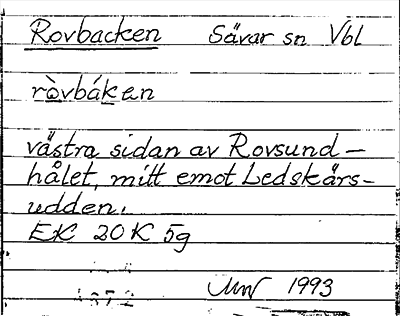 Rovbacken Sävar sn Vbl
ròvbáken
västra sidan av Rovsund-
hålet, mitt emot Ledskärs-
udden.
EK 20 K 5g
1993